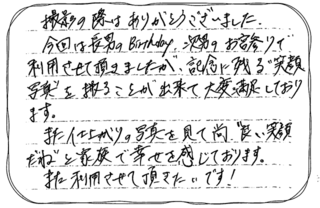 撮影の際はありがとうございました。
今回は長男のBirthday、次男のお宮参りで
利用させて頂きましたが、記念に残る"笑顔
写真"を撮ることが出来て大変満足しており
ます。
また仕上がりの写真を見て尚"良い笑顔
だね"と家族で幸せを感じております。
また利用させて頂きたいです！